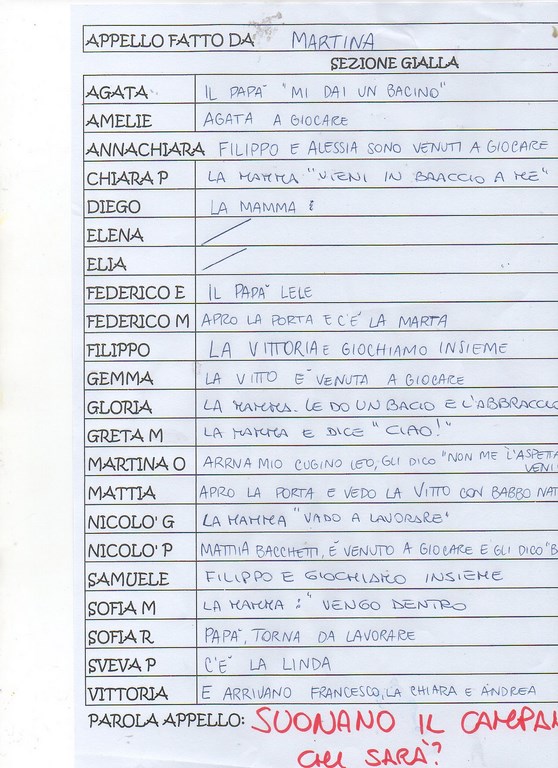 APPELLO FATTO DA MARTINA
SEZIONE GIALLA
AGATA IL PAPA' "MI DAI UN BACINO"
AMELIE AGATA A GIOCARE
ANNACHIARA FILIPPO E ALESSIA SONO VENUTI A GIOCARE
CHIARA P LA MAMMA "VIENI IN BRACCIO A ME"
DIEGO LA MAMMA :
ELENA /
ELIA /
FEDERICO E IL PAPA' LELE
FEDERICO M APRO LA PORTA E C'E' LA MARTA
FILIPPO LA VITTORIA E GIOCHIAMO INSIEME
GEMMA LA VITTO E' VENUTA A GIOCARE
GLORIA LA MAMMA. LE DO UN BACIO E L'ABBRACCIO
GRETA M LA MAMMA E DICE "CIAO!"
MARTINA O ARRIVA MIO CUGINO LEO, GLI DICO "NON ME L'ASPETTA
VENI
MATTIA APRO LA PORTA E VEDO LA VITTO CON BABBO NAT
NICOLO' G LA MAMMA "VADO A LAVORARE"
NICOLO' P MATTIA BACCHETTI, É VENUTO A GIOCARE E GLI DICO "B
SAMUELE FILIPPO E GIOCHIAMO INSIEME
SOFIA M LA MAMMA : " VENGO DENTRO
SOFIA R PAPA', TORNA DA LAVORARE
SVEVA P C'E' LA LINDA
VITTORIA E ARRIVANO FRANCESCO, LA CHIARA E ANDREA
PAROLA APPELLO: SUONANO IL CAMPAN
CHI SARÀ?